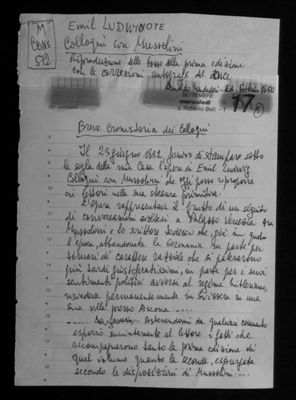 M
CONS
572
Emil LUDWIG NOTE
Colloqui con Mussolini
Riproduzione delle bozze della prima edizione
con le correzioni autografe del duce
Arnoldo Mondadori - Ed.
SETTEMBRE
mercoledì
17
s. Roberto Bell.
Breve Cronistoria dei Colloqui
Il 23 giugno 1932 finivo di stampare sotto
la sigla della mia Casa l'opera di Emil Ludwig
Colloqui con Mussolini che oggi posso riproporre
ai lettori nella sua stesura primitiva.
L'opera rappresentava il frutto di un seguito
di conversazioni svoltesi a Palazzo Venezia tra
Mussolini e lo scrittore tedesco che, già in quel-
l'epoca, abbandonata la Germania in parte per
timori di carattere razziale che si palesarono
più tardi giustificatissimi, in parte per i suoi
sentimenti politici avversi al regime hitleriano,
risiedeva permanentemente in Svizzera in una
sua villa presso Ascona ....
Astenendomi da qualsiasi commento
esporrò succintamente al lettore i fatti che
accompagnarono tanto la prima edizione di
quel volume quanto la seconda, espurgata
secondo le disposizioni di Mussolini ...